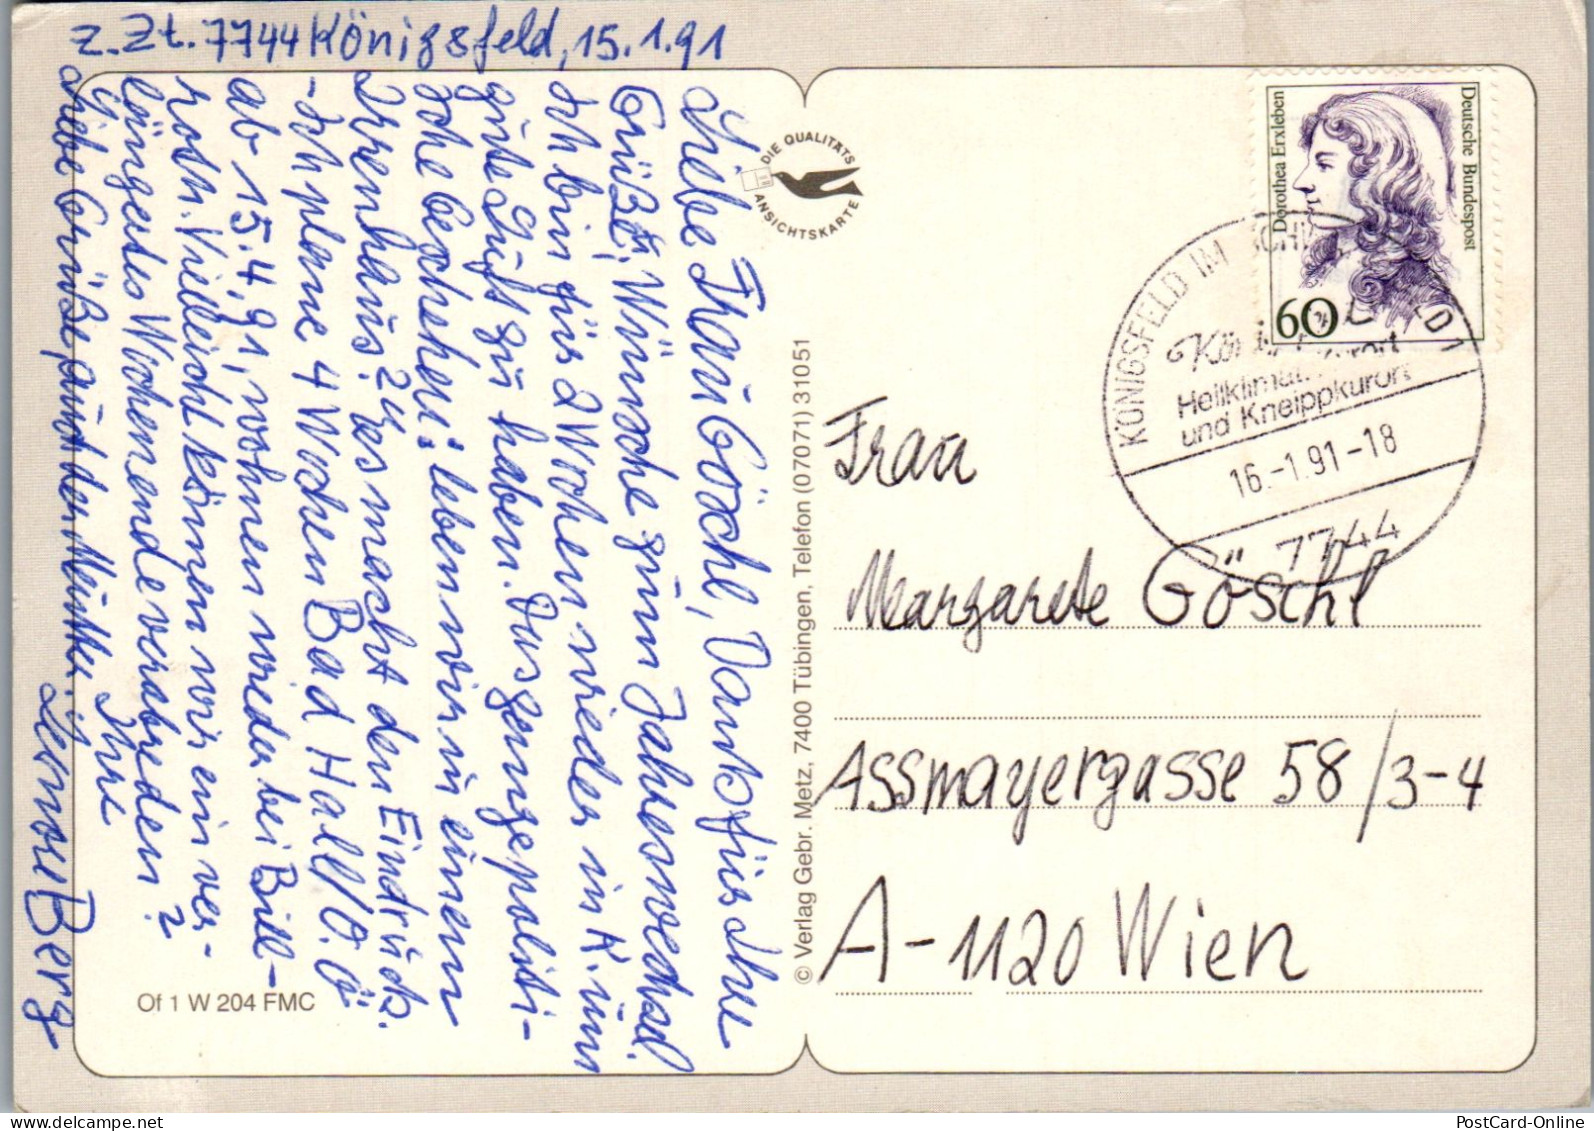 z. Zt. 7744 Königsfeld, 15.1.91
Liebe Frau Göschl, Dank für Ihre
Grüße, Wünsche zum Jahreswechsel.
Ich bin für 2 Wochen wieder in K. um
gute Luft zu haben. Das ganze politi-
sche Geschehen: leben wir in einem
Irrenhaus? Es macht den Eindruck.
- Ich plane 4 Wochen Bad Hall/O.Ö
ab 15.4.91, wohnen wieder bei Bill-
roth. Vielleicht können wir ein ver-
längertes Wochenende verabreden?
Liebe Grüße auch der Mutter. Ihre
Leonore Berg
DIE QUALITÄTS
ANSICHTSKARTE
Of 1 W 204 FMC
© Verlag Gebr. Metz, 7400 Tübingen, Telefon (07071) 31051
Dorothea Erxleben
Deutsche Bundespost
60
KÖNIGSFELD IM
Heilklimat
kurort
und Kneippkurort
16.-1.91-18
7744
Frau
Margarete Göschl
Assmayergasse 58/3-4
A-1120 Wien
delcampe.net
PostCard-Online